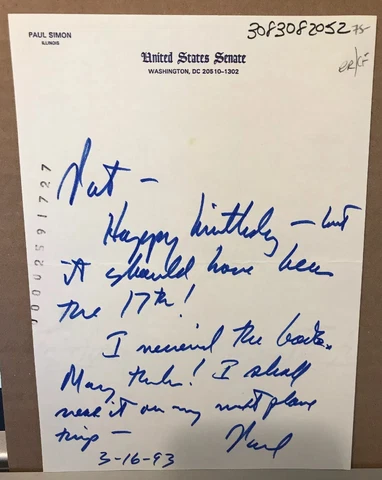 PAUL SIMON
ILLINOIS
3083082052 75-
United States Senate
WASHINGTON, DC 20510-1302
J000025 91727
Pat —
Happy birthday — but
it should have been
the 17th!
I received the book.
Many thanks! I shall
read it on my next plane
trip —
Paul
3-16-93